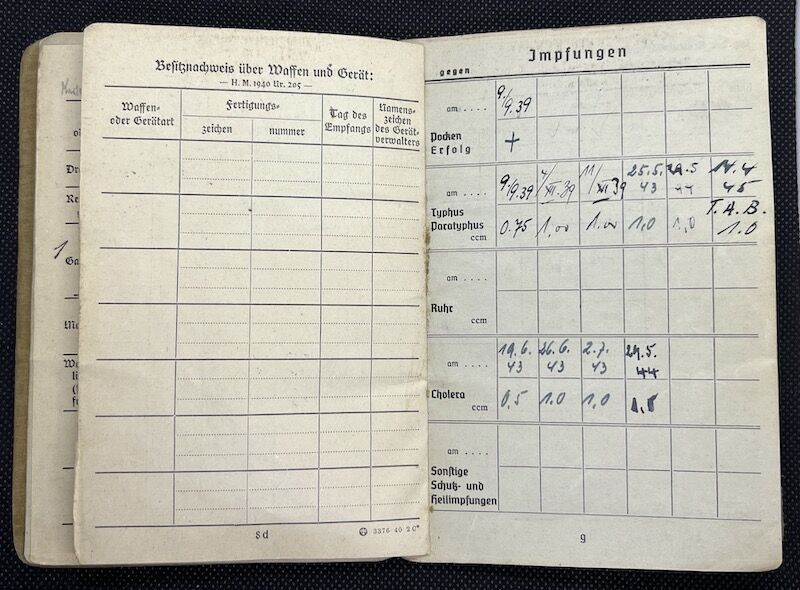 Besitznachweis über Waffen und Gerät:
— H. M. 1940 Nr. 205 —
Waffen- oder Gerätart
Fertigungs-
zeichen
nummer
Tag des Empfangs
Namens- zeichen des Gerät- verwalters
8d
3376 40 2 C
1
Impfungen
gegen
am . . . . 9./9.39
Pocken
Erfolg +
am . . . . 9./9.39 4/XII.39 11/XII 39 25.5.43 29.5 44 14.4 45
T.A.B.
Typhus
Paratyphus
ccm 0.75 1,00 1.00 1,0 1,0 1.0
am . . . .
Ruhr
ccm
am . . . . 19.6.43 26.6.43 2.7.43 29.5.44
Cholera
ccm 0,5 1.0 1,0 1,0
am . . . .
Sonstige
Schutz- und
Heilimpfungen
9